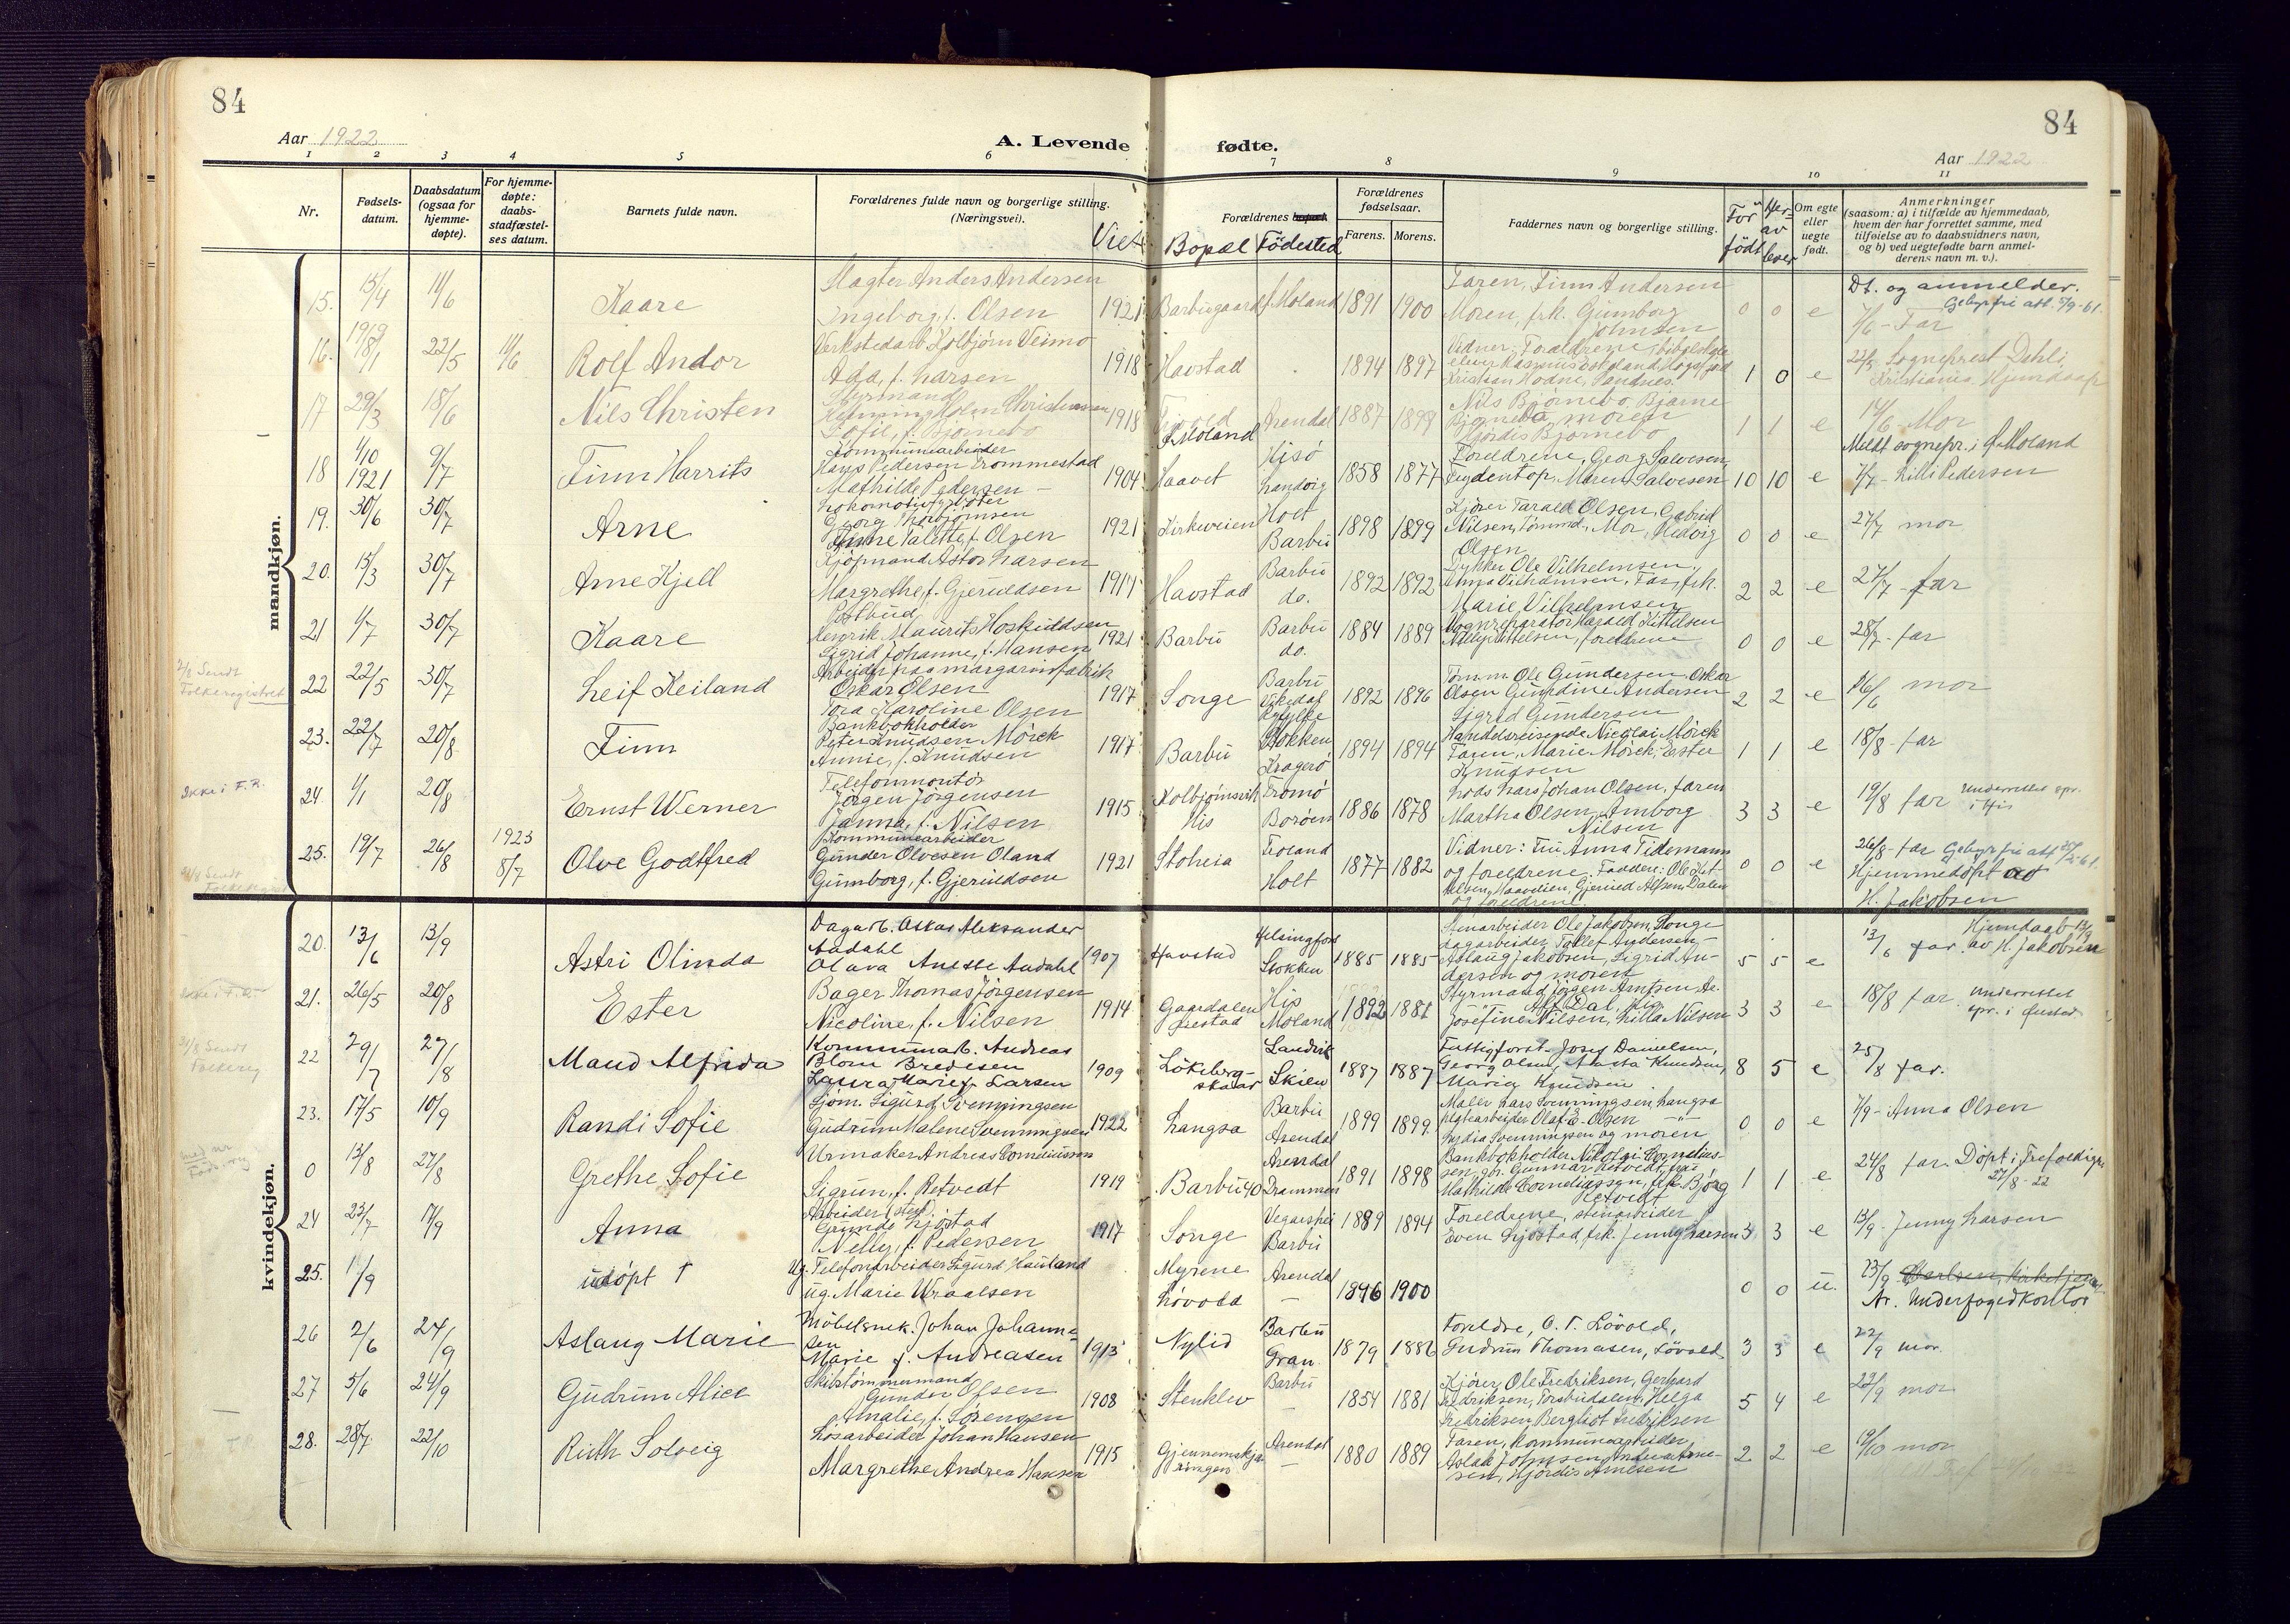 84
84
Aar 1922
A. Levende fødte.
Aar 1922
1 2 3 4 5 6 7 8 9 10 11
Nr.
Fødsels-
datum.
Daabsdatum
(ogsaa for
hjemme-
døpte).
For hjemme-
døpte:
daabs-
stadfæstel-
ses datum.
Barnets fulde navn.
Forældrenes fulde navn og borgerlige stilling.
(Næringsvei).
Viet
Forældrenes bopæl
Bopæl Födested
Forældrenes
fødselsaar.
Farens. Morens.
Faddernes navn og borgerlige stilling.
Før
født
Her-
av
lever
Om egte
eller
uegte
født.
Anmerkninger
(saasom: a) i tilfælde av hjemmedaab,
hvem der har forrettet samme, med
tilføielse av to daabsvidners navn,
og b) ved uegtefødte barn anmel-
derens navn m. v.).
Dt. og anmelder.
mandkjøn.
15. 15/4 11/6 Kaare
Slagter Anders Andersen
Ingeborg, f. Olsen
1921 Barbugaard f. Moland 1891 1900
Faren, Finn Andersen
Moren, frk. Gumborg
Johnsen
0 0 e
Gebyrfri att. 5/9-61.
7/6 - Far
16. 1919 18/1 22/5 11/6 Rolf Andor
Verkstedarb. Kolbjørn Veimo
Ada, f. Larsen
1918 Havstad 1894 1897
Vidner: Foreldrene, bibelskole
elever Rasmus Østeland, Høgsfjord
Kristian Hodne, Sandnes.
1 0 e
22/5 Sogneprest Dahli
Kristiania. Hjemdaap
17 29/3 18/6 Nils Christen
Styrmand
Henning Holm Christensen
Sofie, f. Bjørnebo
1918
F. Moland
Arendal 1887 1899
Nils Bjørnebo, Bjarne
Bjørnebo, moren
Hjørdis Bjørnebo
1 1 e
14/6 Mor
Meldt sognepr. i F. Moland
18 1/10 1921 9/7 Finn Harrits
Kommunearbeider
Hans Pedersen Trommestad
Mathilde Pedersen -
1904 Haavet
Hisø
Landvig
1858 1877
Foreldrene, Georg Salvesen,
Maren Salvesen
10 10 e
7/7 - Lilli Pedersen
19. 30/6 30/7 Arne
Lokomotivfyrbøter
Georg Thorbjørnsen
Anne Valette f. Olsen
1921 Kirkeveien
Holt
Barbu
1898 1899
Kjører Tarald Olsen, Gabriel
Nilsen, Tømmd, Mor, Hedvig
Olsen
0 0 e
27/7 mor
20. 15/3 30/7 Arne Kjell
Kjøpmand Astor Larsen
Margrethe, f. Gjeruldsen
1917 Havstad
Barbu
do.
1892 1892
Dykker Ole Vilhelmsen,
Anna Vilhelmsen, Far, frk.
Marie Vilhelmsen
2 2 e
27/7 - far
21 1/7 30/7 Kaare
Postbud
Henrik Maurits Hoskuldsen
Sigrid Johanne, f. Hansen
1921 Barbu
Barbu
do.
1884 1889
Vognreparatør Harald Kittelsen
Kittelsen, foreldrene
0 0 e
28/7 - far
2/8 Sendt
Folkeregistret
22 22/5 30/7 Leif Keiland
Arbeider paa margarinfabrik
Oskar Olsen
Tora Karoline Olsen
1917 Songe
Barbu
Vikedal
Ryfylke
1892 1896
Tømm. Ole Gundersen, Oskar
Olsen Gundine Andersen
Sigrid Gundersen
2 2 e
16/6 mor
23. 22/7 20/8 Finn
Bankbokholder
Peter Knudsen Mörck
Annie, f. Knudsen
1917 Barbu
Stokken
Kragerø
1894 1894
Handelsreisende Nicolai Mörck
Faren, Marie Mörck, Ester
Knudsen
1 1 e
18/8 - far
Ikke i F.R.
24 1/1 20/8 Ernst Werner
Telefonmontør
Jørgen Jørgensen
Janna, f. Nilsen
1915
Kolbjørnsvik
His
Tromø
Borøen
1886 1878
Lods Lars Johan Olsen, faren
Martha Olsen, Amborg
Nilsen
3 3 e
19/8 far Underrettet spr.
i His
25. 19/7 26/8 1923 8/7 Olve Godtfred
Kommunearbeider
Gunder Olvesen Oland
Gumborg, f. Gjeruldsen
1921 Stoheia
Froland
Holt
1877 1882
Vidner: Fru Anna Tidemann
og foreldrene. Faddere: Ole Kit-
telsen, Haaveien, Gjerulf Alfsen Dalen
og foreldrene.
0 0 e
26/8 - far Gebyrfri att.
Hjemmedøpt av
H. Jakobsen
Sendt
Folkeregist
kvindekjøn.
20. 13/6 13/9 Astri Olinda
Dagarb. Oskar Aleksander
Audahl
Olava Anette Audahl
1907 Havstad
Helsingfors
Stokken
1885 1885
Stenarbeider Ole Jakobsen, Songe
dagarbeider Tallef Andersen,-
Aslaug Jakobsen, Sigrid An-
dersen og moren
5 5 e
13/6 far. Hjemdaab 13/9
av H. Jakobsen
Ikke i F.R.
21. 26/5 20/8 Ester
Bager Thomas Jørgensen
Nicoline, f. Nilsen
1914
Gaardalen
Øiestad
His
Moland
1892 1881
Styrmand Jørgen Arntsen, Ar.
Alf Dal, His,
Josefine Nilsen, Lilla Nilsen
3 3 e
18/8 far. Underrettet
spr. i Øiestad
31/8 Sendt
Folkereg
22 29/7 27/8 Maud Alfrida
Kommunarb. Andreas
Blom Bredesen
Laura Marie f. Larsen
1909
Løkeberg-
skaar
Landvik
Skien
1887 1887
Fattigforst. Josef Danielsen,
Georg Olsen, Aasta Knudsen,
Marie Knudsen
8 5 e
25/8 far.
23. 17/5 10/9 Randi Sofie
Sjøm. Sigurd Svenningsen
Gudrun Malene Svenningsen
1922 Langsæ
Barbu
Arendal
1899 1899.
Maler Lars Svenningsen, Langsæ
platearbeider Olaf E. Olsen -"-
Lydia Svenningsen og moren
0 0 e
7/9 - Anna Olsen
0 13/8 27/8 Grethe Sofie
Urmaker Andreas Corneliussen
Sigrun, f. Retvedt
1919 Barbu 40
Arendal
Drammen
1891 1898
Bankbokholder Nikolai Cornelius-
sen, gr. Gunnar Retvedt, fru
Mathilde Corneliussen, frk. Bjørg
Retvedt
1 1 e
24/8 far. Döpt i Trefoldigh.
27/8 - 22
24 23/7 17/9 Anna
Arbeider (sten).
Gunde Ljøstad
Nelly, f. Pedersen
1917 Songe
Vegarshei
Barbu
1889 1894
Foreldrene, stenarbeider
Even Ljøstad, frk. Jenny Larsen
3 3 e
13/9 - Jenny Larsen
25. 11/9 udöpt †
Ug. Telefonarbeider Sigurd Hauland
ug. Marie Wraalsen
Myrene
Løvold
Arendal
-
1896 1900
0 0 u.
23/9
Ar. Underfogedkontor
26 2/6 24/9 Aslaug Marie
Möbelsnek. Johan Johanne-
sen
Marie f. Andreasen
1913 Nylid
Barbu
Gran.
1879 1886
Foreldre, O. T. Lövold,
Gudrun Thomasen, Lövold
3 3 e
22/9 mor.
27 5/6 24/9 Gudrun Alice
Skibstømmermand
Gunder Olsen
Amalie, f. Sørensen
1908 Stenklev
Barbu
-
1854 1881
Kjører, Ole Fredriksen, Gerhard
Fredriksen, Torsbudalen, Helga
Fredriksen, Bergliot Fredriksen
5 4 e
22/9 mor
28. 28/7 22/10 Ruth Solveig
Løsarbeider Johan Hansen
Margrethe Andrea Hansen
1915
Gjennemskjæ-
ringen
Arendal
-
1880 1889
Faren, kommunearbeider,
Aslak Johnsen, Andrea Arne-
sen, Hjördis Arnesen
2 2 e
19/10 mor